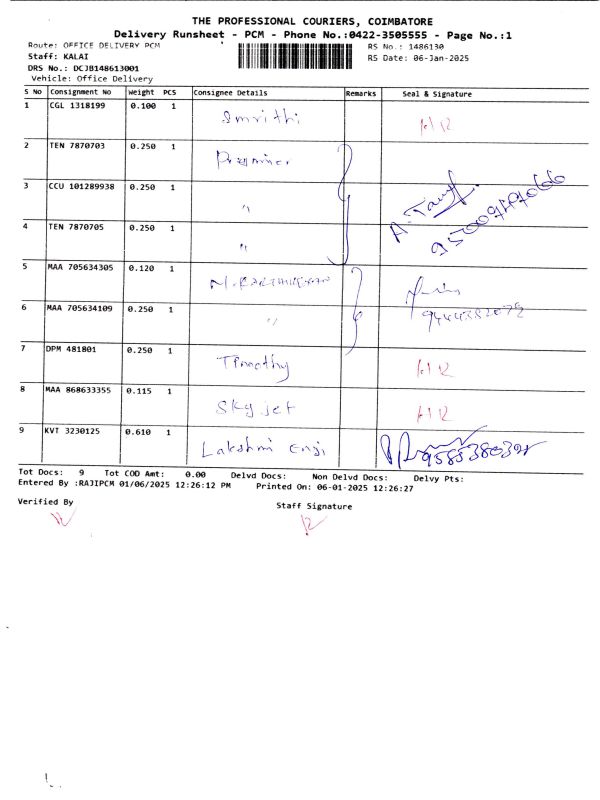 THE PROFESSIONAL COURIERS, COIMBATORE
Delivery Runsheet - PCM - Phone No.:0422-3505555 - Page No.:1
Route: OFFICE DELIVERY PCM
RS No.: 1486130
Staff: KALAI
RS Date: 06-Jan-2025
DRS No.: DCJB148613001
Vehicle: Office Delivery
S No Consignment No Weight PCS Consignee Details Remarks Seal & Signature
1 CGL 1318199 0.100 1 Smrithi
2 TEN 7870703 0.250 1
3 CCU 101289938 0.250 1 "
4 TEN 7870705 0.250 1 "
5 MAA 705634305 0.120 1 M.
6 MAA 705634109 0.250 1 "
7 DPM 481801 0.250 1 Timothy
8 MAA 868633355 0.115 1 Sky jet
9 KVT 3230125 0.610 1 Lakshmi Engi
Tot Docs: 9 Tot COD Amt: 0.00 Delvd Docs: Non Delvd Docs: Delvy Pts:
Entered By :RAJIPCM 01/06/2025 12:26:12 PM Printed On: 06-01-2025 12:26:27
Verified By
Staff Signature